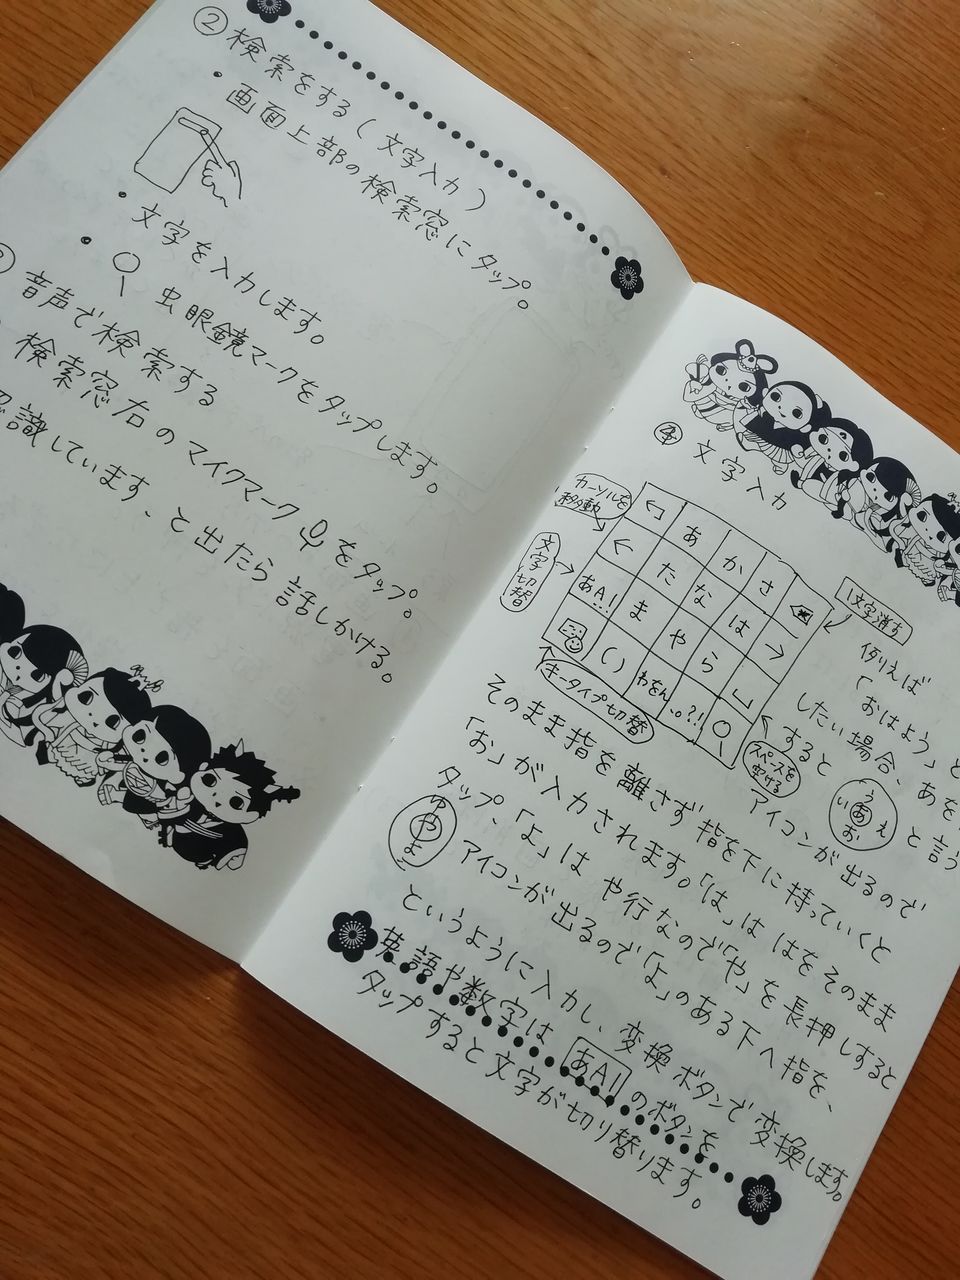 ② 検索をする(文字入力)
・画面上部の検索窓にタップ。
・文字を入力します。
・虫眼鏡マークをタップします。
音声で検索する
検索窓右のマイクマークをタップ。
識しています、と出たら話しかける。
④ 文字入力
カーソルを移動
文字切替
あ か さ
← た な は →
あA1 ま や ら
() わをん 、。?!
キータイプ切替
1文字消す
スペースを空ける
例りえば
「おはよう」と
したい場合、あを
すると
う
い あ え
お
と言う
アイコンが出るので
そのまま指を離さず指を下に持っていくと
「お」が入力されます。「は」ははをそのまま
タップ、「よ」はや行なので「や」を長押しすると
ゆ
や
よ
アイコンが出るので「よ」のある下へ指を、
というように入力し、変換ボタンで変換します。
英語や数字は あA1 のボタンを
タップすると文字が切り替ります。